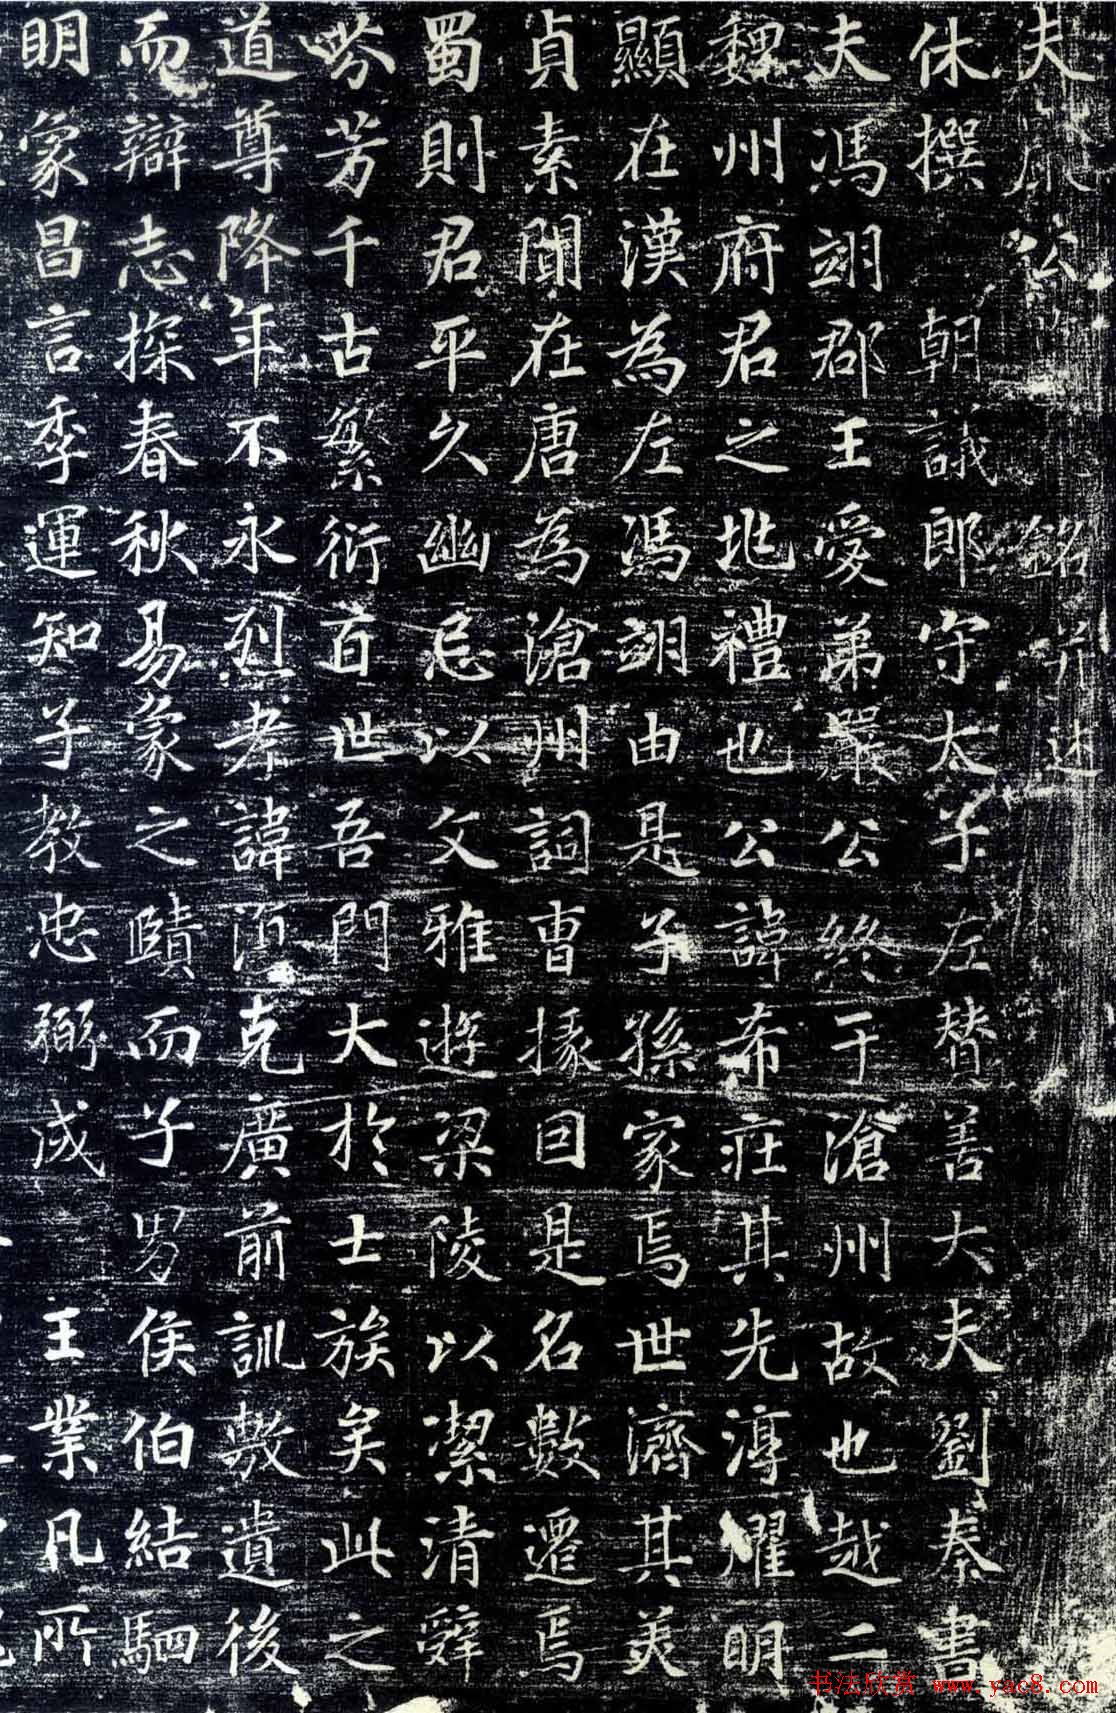 夫嚴公 銘并述
休撰 朝議郎守太子左贊善大夫劉秦書
夫馮翊郡王愛弟嚴公終于滄州故也越二
魏州府君之地禮也公諱希莊其先淳耀明
顯在漢為左馮翊由是子孫家焉世濟其美
貞素聞在唐為滄州詞曹掾因是名數遷焉
蜀則君平久幽忌以文雅遊梁陵以潔清辭
芳千古繁衍百世吾門大於士族矣此之
道尊降年不永烈考諱 克廣前訓敷遺後
而辯志探春秋易象之賾而子男侯伯結駟
明象昌言季運知子教忠弼成 王業凡所
书法欣赏 www.yac8.com